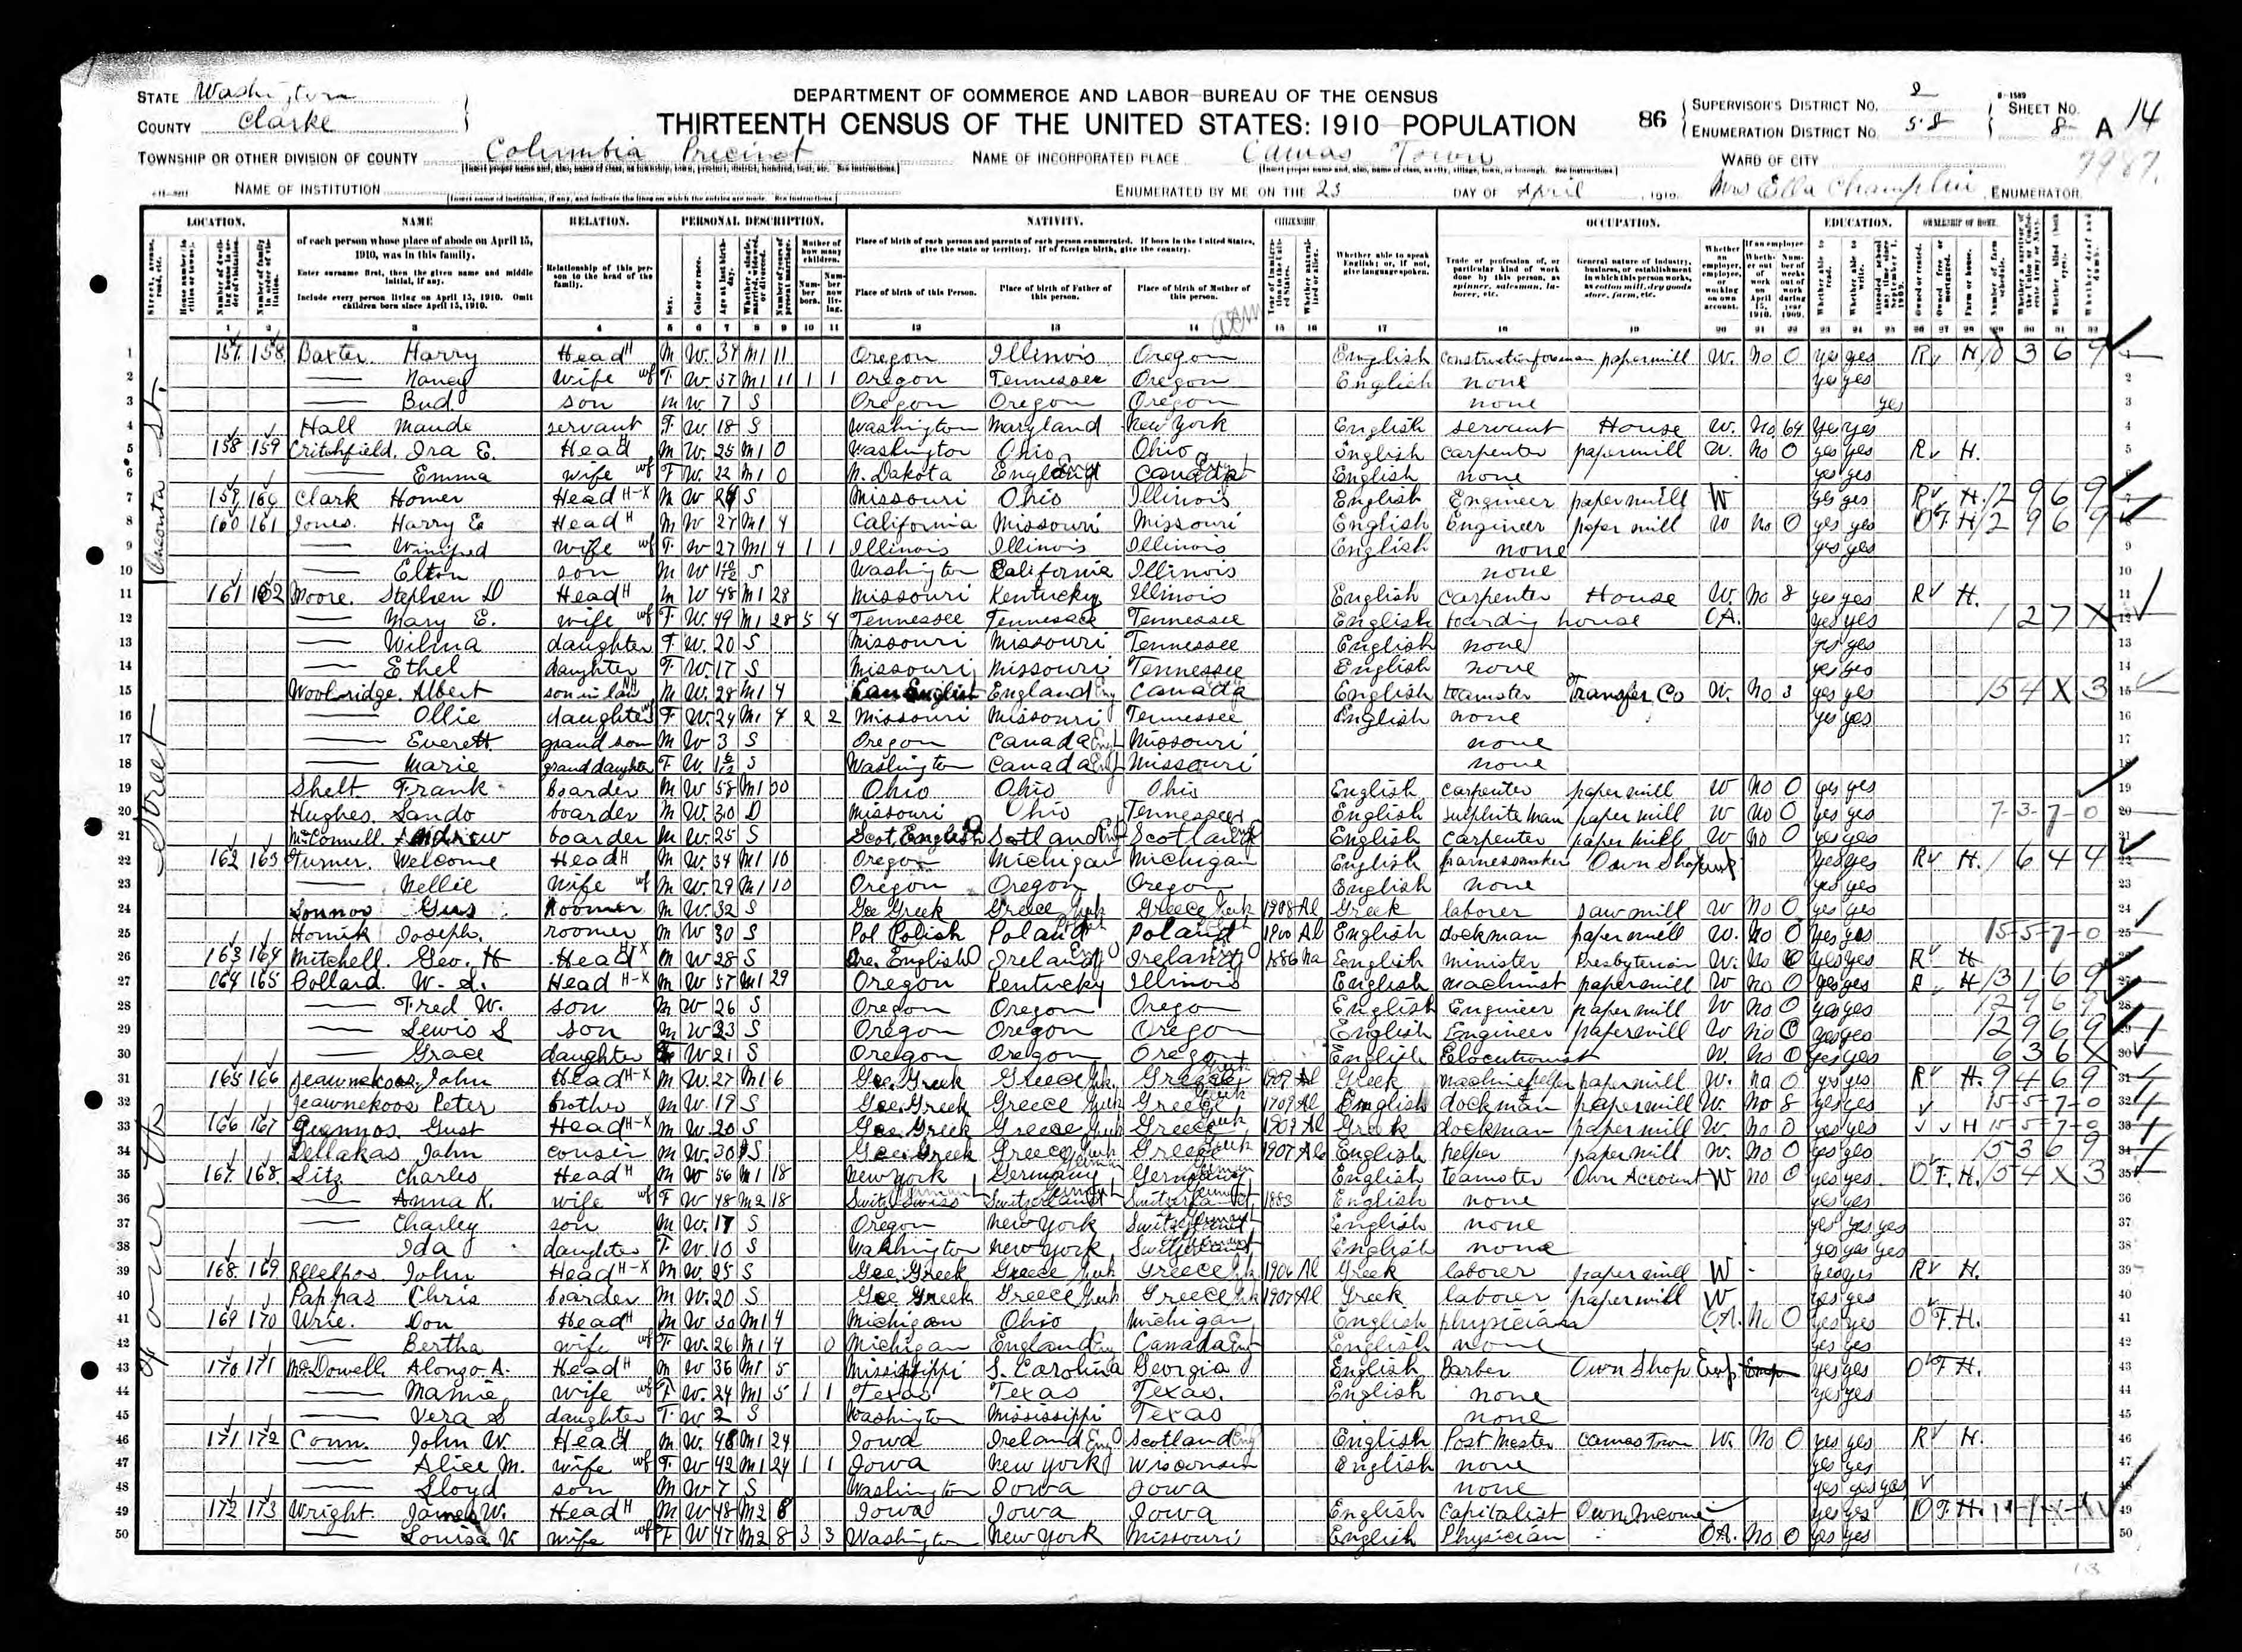 STATE Washington
COUNTY Clarke
DEPARTMENT OF COMMERCE AND LABOR—BUREAU OF THE CENSUS
THIRTEENTH CENSUS OF THE UNITED STATES: 1910—POPULATION
86
SUPERVISOR'S DISTRICT NO. 2
ENUMERATION DISTRICT NO. 58
SHEET NO. 8 A
14
7987
TOWNSHIP OR OTHER DIVISION OF COUNTY Columbia Precinct
NAME OF INCORPORATED PLACE Camas Town
WARD OF CITY
NAME OF INSTITUTION
ENUMERATED BY ME ON THE 23 DAY OF April, 1910. Mrs Ella Champlin, ENUMERATOR.
LOCATION. NAME RELATION. PERSONAL DESCRIPTION. NATIVITY. CITIZENSHIP. OCCUPATION. EDUCATION. OWNERSHIP OF HOME.
of each person whose place of abode on April 15, 1910, was in this family.
Enter surname first, then the given name and middle initial, if any.
Include every person living on April 15, 1910. Omit children born since April 15, 1910.
Relationship of this person to the head of the family.
Place of birth of each person and parents of each person enumerated. If born in the United States, give the state or territory. If of foreign birth, give the country.
Place of birth of this Person. Place of birth of Father of this person. Place of birth of Mother of this person.
Whether able to speak English; or, if not, give language spoken.
Trade or profession of, or particular kind of work done by this person, as spinner, salesman, laborer, etc.
General nature of industry, business, or establishment in which this person works, as cotton mill, dry goods store, farm, etc.
1 157 158 Baxter Harry Head M W 37 M1 11 Oregon Illinois Oregon English construction foreman papermill W. No 0 yes yes R H 8 3 6 9
2 Nancy wife F W 37 M1 11 1 1 Oregon Tennessee Oregon English none yes yes
3 Bud son M W 7 S Oregon Oregon Oregon none yes
4 Hall Maude servant F. W. 18 S Washington Maryland New York English servant House W. No yes yes
5 158 159 Critchfield, Ira E. Head M W. 25 M1 0 Washington Ohio Ohio English carpenter papermill W. No 0 yes yes R H.
6 Emma wife F W. 22 M1 0 N. Dakota England Canada English none yes yes
7 159 160 Clark Homer Head M W S Missouri Ohio Illinois English Engineer papermill W yes yes R H. 12 9 6 9
8 160 161 Jones. Harry E Head M W 27 M1 4 California Missouri Missouri English Engineer paper mill W No 0 yes yes O F H 12 9 6 9
9 Winifred wife F W 27 M1 4 1 1 Illinois Illinois Illinois English none yes yes
10 Elton son M W S Washington California Illinois none
11 161 162 Moore. Stephen D Head M W 48 M1 28 Missouri Kentucky Illinois English carpenter House W. No 8 yes yes R H.
12 Mary E. wife F W. 49 M1 28 5 4 Tennessee Tennessee Tennessee English boarding house OA. yes yes 1 2 7 X
13 Wilma daughter F W. 20 S Missouri Missouri Tennessee English none yes yes
14 Ethel daughter F W. 17 S Missouri Missouri Tennessee English none yes yes
15 Woolridge. Albert son in law M W. 28 M1 4 Can English England Canada English teamster Transfer Co W. No 3 yes yes 15 4 X 3
16 Ollie daughter F W. 24 M1 4 2 2 Missouri Missouri Tennessee English none yes yes
17 Everett grand son M W 3 S Oregon Canada Missouri none
18 Marie grand daughter F W. S Washington Canada Missouri none
19 Shelt Frank boarder M W 58 M1 30 Ohio Ohio Ohio English carpenter paper mill W No 0 yes yes
20 Hughes. Sando boarder M W. 30 D Missouri Ohio Tennessee English sulphite man paper mill W No 0 yes yes 7-3-7-0
21 McConnell. Andrew boarder M W. 25 S Scot English Scotland Scotland English carpenter paper mill W No 0 yes yes
22 162 163 Turner. Welcome Head M W. 34 M1 10 Oregon Michigan Michigan English harnessmaker Own Shop Emp yes yes R H. 1 6 4 4
23 Nellie wife M W. 29 M1 10 Oregon Oregon Oregon English none yes yes
24 Gus Roomer M W. 32 S Gee Greek Greece Greece 1908 Al Greek laborer sawmill W No 0 yes yes
25 Hornik Joseph. roomer M W 30 S Pol Polish Poland Poland 1900 Al English dockman paper mill W. No 0 yes yes 15-5-7-0
26 163 164 Mitchell. Geo. H Head M W 28 S Ire. English Ireland Ireland 1886 Na English minister Presbyterian W. No 0 yes yes R H
27 164 165 Collard. W. S. Head M W 57 M1 29 Oregon Kentucky Illinois English machinist papermill W No 0 yes yes R H 13 1 6 9
28 Fred W. son M W 26 S Oregon Oregon Oregon English Engineer papermill W No 0 yes yes 12 9 6 9
29 Lewis S son M W 23 S Oregon Oregon Oregon English Engineer papermill W No 0 yes yes 12 9 6 9
30 Grace daughter F W 21 S Oregon Oregon Oregon English Elocutionist W. No 0 yes yes 6 3 6 X
31 165 166 Jeawnekoos, John Head M W. 27 M1 6 Gee. Greek Greece Greece 1909 Al Greek machine helper papermill W. no 0 yes yes R H. 9 4 6 9
32 Jeawnekoos Peter brother M W. 19 S Gee. Greek Greece Greece 1909 Al English dockman papermill W. No 8 yes yes 15-5-7-0
33 166 167 Giannos. Gust Head M W. 20 S Gee. Greek Greece Greece 1909 Al Greek dockman papermill W. No 0 yes yes H 15-5-7-0
34 Dellakas John cousin M W. 30 S Gee Greek Greece Greece 1907 Al English helper papermill W. No 0 yes yes 15 3 6 9
35 167 168 Sitz Charles Head M W 56 M1 18 New York Germany Germany English teamster Own Account W No 0 yes yes O F. H. 15 4 X 3
36 Anna K. wife F W 48 M2 18 Switz Swiss Switzerland Switzerland 1883 English none yes yes
37 Charley son M W. 17 S Oregon New York Switzerland English none yes yes yes
38 Ida daughter F W. 10 S Washington New York Switzerland English none yes yes yes
39 168 169 John Head M W. 25 S Gee. Greek Greece Greece 1906 Al Greek laborer papermill W yes yes R H.
40 Pappas Chris boarder M W. 20 S Gee Greek Greece Greece 1907 Al Greek laborer papermill W yes yes
41 169 170 Urie. Don Head M W 30 M1 4 Michigan Ohio Michigan English physician O.A. No 0 yes yes O F. H.
42 Bertha wife F W. 26 M1 4 0 Michigan England Canada English none yes yes
43 170 171 McDowell. Alonzo A. Head M W 36 M1 5 Mississippi S. Carolina Georgia English Barber Own Shop Emp yes yes O F H.
44 Mamie wife F W. 24 M1 5 1 1 Texas Texas Texas. English none yes yes
45 Vera S daughter F W 2 S Washington Mississippi Texas none
46 171 172 Conn. John W. Head M W. 48 M1 24 Iowa Ireland Scotland English Post Master Camas Town W. No 0 yes yes R H.
47 Alice M. wife F W 42 M1 24 1 1 Iowa New York Wisconsin English none yes yes
48 Lloyd son M W 7 S Washington Iowa Iowa none yes yes yes
49 172 173 Wright. James W. Head M W 48 M2 8 Iowa Iowa Iowa English Capitalist Own Income yes yes O F. H.
50 Louisa V. wife F W 47 M2 8 3 3 Washington New York Missouri English Physician OA. No 0 yes yes
Fourth Street
St.